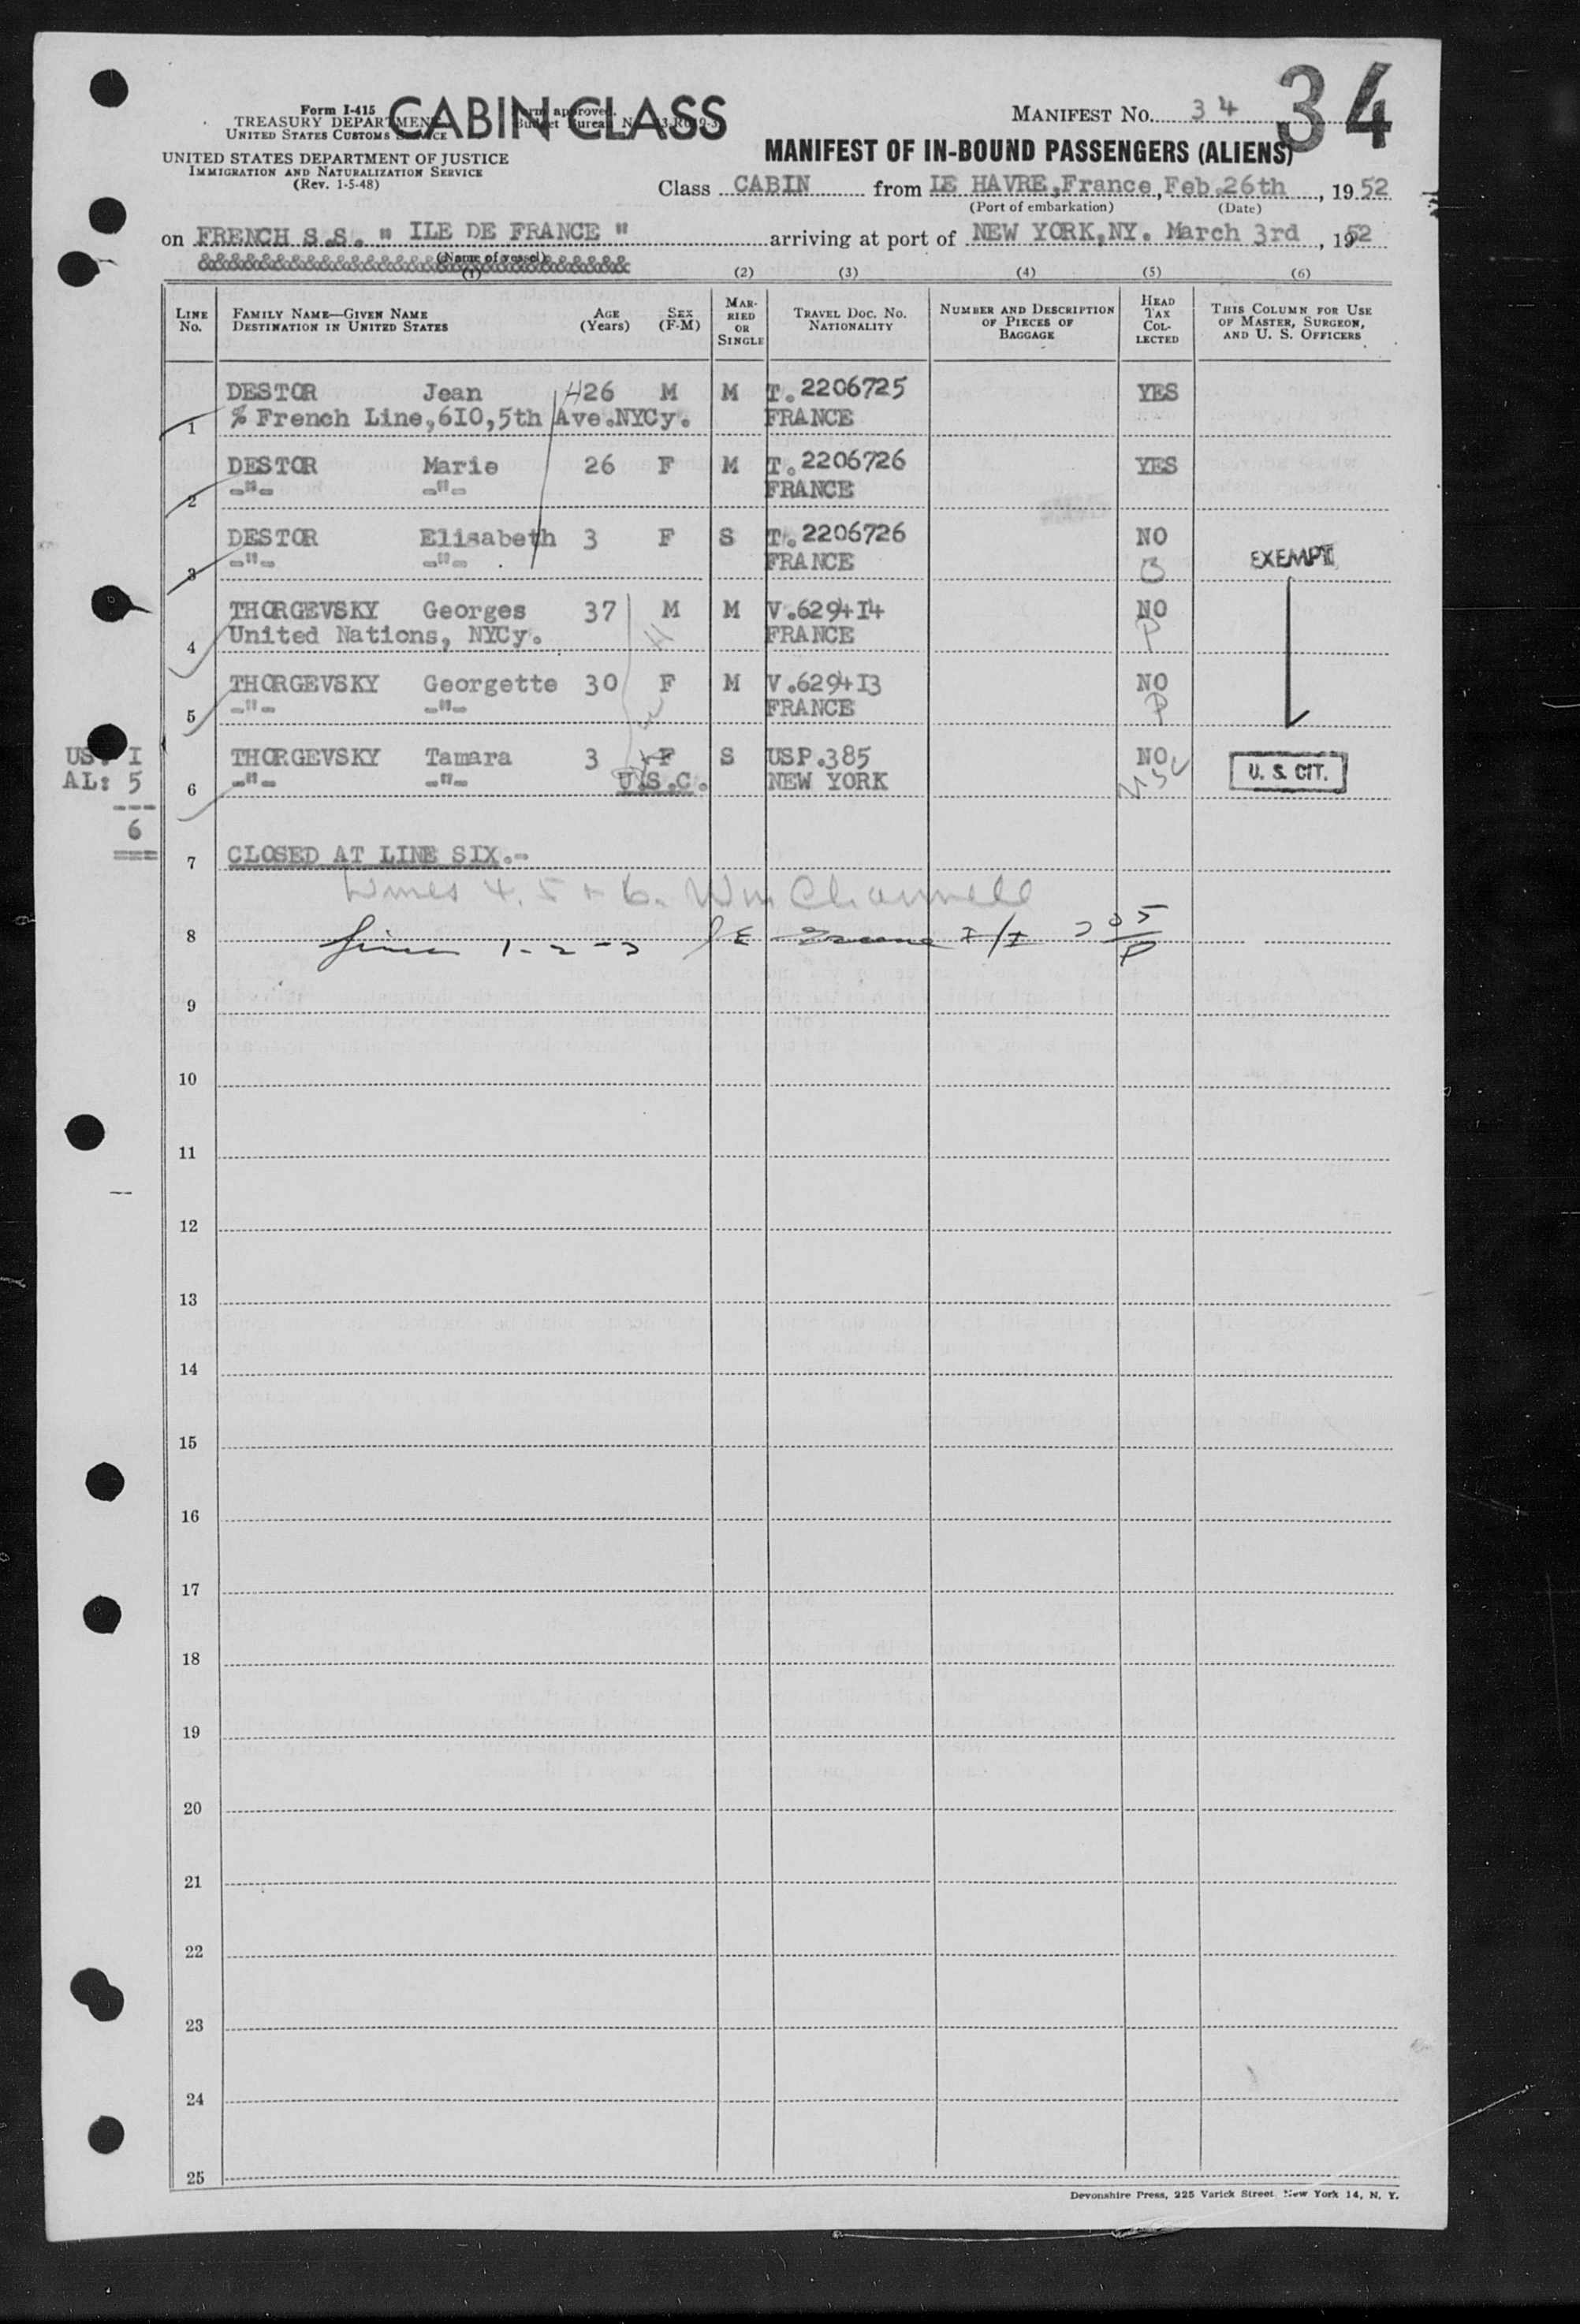 34
CABIN CLASS
Form I-415
TREASURY DEPARTMENT
UNITED STATES CUSTOMS SERVICE
Form approved.
Budget Bureau No.
UNITED STATES DEPARTMENT OF JUSTICE
IMMIGRATION AND NATURALIZATION SERVICE
(Rev. 1-5-48)
MANIFEST No. 34
MANIFEST OF IN-BOUND PASSENGERS (ALIENS)
Class CABIN from LE HAVRE,France, Feb.26th, 1952
(Port of embarkation) (Date)
on FRENCH S.S. " ILE DE FRANCE " arriving at port of NEW YORK,NY. March 3rd, 1952
(Name of vessel)
(1) (2) (3) (4) (5) (6)
LINE No. FAMILY NAME—GIVEN NAME DESTINATION IN UNITED STATES AGE (Years) SEX (F-M) MARRIED OR SINGLE TRAVEL DOC. NO. NATIONALITY NUMBER AND DESCRIPTION OF PIECES OF BAGGAGE HEAD TAX COLLECTED THIS COLUMN FOR USE OF MASTER, SURGEON, AND U. S. OFFICERS
DESTOR Jean 426 M M T.2206725 YES
1 % French Line,6I0,5th Ave.NYCy. FRANCE
DESTOR Marie 26 F M T.2206726 YES
2 -"- -"- FRANCE
DESTOR Elisabeth 3 F S T.2206726 NO
3 -"- -"- FRANCE B EXEMPT
THORGEVSKY Georges 37 M M V.6294I4 NO
4 United Nations, NYCy. FRANCE P
THORGEVSKY Georgette 30 F M V.6294I3 NO
5 -"- -"- FRANCE P
US: I THORGEVSKY Tamara 3 F S USP.385 NO
AL: 5 6 -"- -"- U.S.C. NEW YORK USC U. S. CIT.
---
6
===
7 CLOSED AT LINE SIX.-
Lines 4, 5 + 6. Wm Channell
8 Lines 1-2-3
9
10
11
12
13
14
15
16
17
18
19
20
21
22
23
24
25
Devonshire Press, 225 Varick Street New York 14, N. Y.